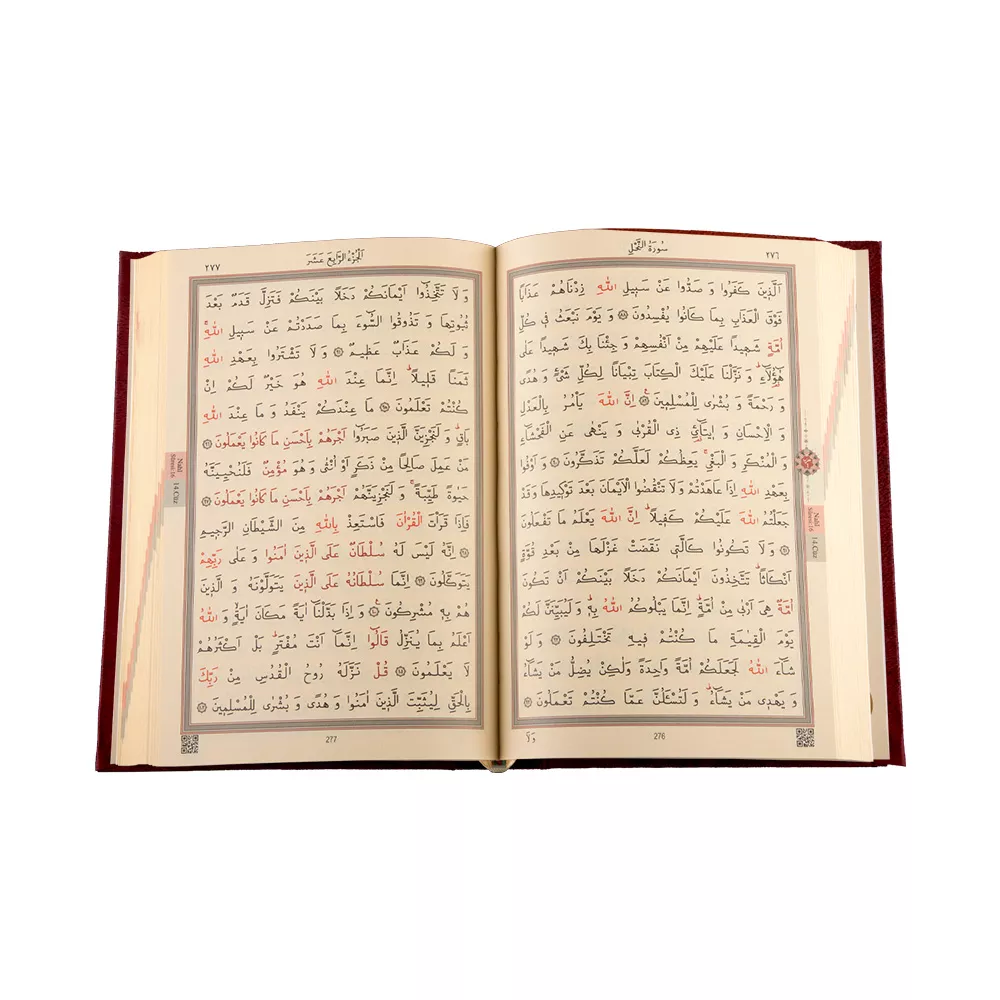 سورة النحل
٢٧٦
اَلَّذِينَ كَفَرُوا وَ صَدُّوا عَنْ سَبِيلِ اللّٰهِ زِدْنَاهُمْ عَذَابًا
فَوْقَ الْعَذَابِ بِمَا كَانُوا يُفْسِدُونَ ۝ وَ يَوْمَ نَبْعَثُ فِى كُلِّ
اُمَّةٍ شَهِيدًا عَلَيْهِمْ مِنْ اَنْفُسِهِمْ وَ جِئْنَا بِكَ شَهِيدًا عَلٰى
هٰٓؤُلَٓاءِۜ وَ نَزَّلْنَا عَلَيْكَ الْكِتَابَ تِبْيَانًا لِكُلِّ شَىْءٍ وَ هُدًى
وَ رَحْمَةً وَ بُشْرٰى لِلْمُسْلِمِينَ ۝ اِنَّ اللّٰهَ يَاْمُرُ بِالْعَدْلِ
وَ الْاِحْسَانِ وَ اِيتَٓائِ ذِى الْقُرْبٰى وَ يَنْهٰى عَنِ الْفَحْشَٓاءِ
وَ الْمُنْكَرِ وَ الْبَغْىِۚ يَعِظُكُمْ لَعَلَّكُمْ تَذَكَّرُونَ ۝ وَ اَوْفُوا
بِعَهْدِ اللّٰهِ اِذَا عَاهَدْتُمْ وَ لَا تَنْقُضُوا الْاَيْمَانَ بَعْدَ تَوْكِيدِهَا وَ قَدْ
جَعَلْتُمُ اللّٰهَ عَلَيْكُمْ كَفِيلًاۜ اِنَّ اللّٰهَ يَعْلَمُ مَا تَفْعَلُونَ
۝ وَ لَا تَكُونُوا كَالَّتِى نَقَضَتْ غَزْلَهَا مِنْ بَعْدِ قُوَّةٍ
اَنْكَاثًاۜ تَتَّخِذُونَ اَيْمَانَكُمْ دَخَلًا بَيْنَكُمْ اَنْ تَكُونَ
اُمَّةٌ هِىَ اَرْبٰى مِنْ اُمَّةٍۜ اِنَّمَا يَبْلُوكُمُ اللّٰهُ بِهِۜ وَ لَيُبَيِّنَنَّ لَكُمْ
يَوْمَ الْقِيٰمَةِ مَا كُنْتُمْ فِيهِ تَخْتَلِفُونَ ۝ وَ لَوْ
شَٓاءَ اللّٰهُ لَجَعَلَكُمْ اُمَّةً وَاحِدَةً وَلٰكِنْ يُضِلُّ مَنْ يَشَٓاءُ
وَ يَهْدِى مَنْ يَشَٓاءُۜ وَ لَتُسْـَٔلُنَّ عَمَّا كُنْتُمْ تَعْمَلُونَ ۝
276
وَلَا
Nahl
Sûresi:16
14.Cüz
اَلْجُزْءُ الرَّابِعَ عَشَرَ
٢٧٧
وَ لَا تَتَّخِذُٓوا اَيْمَانَكُمْ دَخَلًا بَيْنَكُمْ فَتَزِلَّ قَدَمٌ بَعْدَ
ثُبُوتِهَا وَ تَذُوقُوا السُّٓوءَ بِمَا صَدَدْتُمْ عَنْ سَبِيلِ اللّٰهِۚ
وَ لَكُمْ عَذَابٌ عَظِيمٌ ۝ وَ لَا تَشْتَرُوا بِعَهْدِ اللّٰهِ
ثَمَنًا قَلِيلًاۜ اِنَّمَا عِنْدَ اللّٰهِ هُوَ خَيْرٌ لَكُمْ اِنْ
كُنْتُمْ تَعْلَمُونَ ۝ مَا عِنْدَكُمْ يَنْفَدُ وَ مَا عِنْدَ اللّٰهِ
بَاقٍۜ وَ لَنَجْزِيَنَّ الَّذِينَ صَبَرُٓوا اَجْرَهُمْ بِاَحْسَنِ مَا كَانُوا يَعْمَلُونَ ۝
مَنْ عَمِلَ صَالِحًا مِنْ ذَكَرٍ اَوْ اُنْثٰى وَ هُوَ مُؤْمِنٌ فَلَنُحْيِيَنَّهُ
حَيٰوةً طَيِّبَةًۚ وَ لَنَجْزِيَنَّهُمْ اَجْرَهُمْ بِاَحْسَنِ مَا كَانُوا يَعْمَلُونَ ۝
فَاِذَا قَرَاْتَ الْقُرْاٰنَ فَاسْتَعِذْ بِاللّٰهِ مِنَ الشَّيْطَانِ الرَّجِيمِ
۝ اِنَّهُ لَيْسَ لَهُ سُلْطَانٌ عَلَى الَّذِينَ اٰمَنُوا وَ عَلٰى رَبِّهِمْ
يَتَوَكَّلُونَ ۝ اِنَّمَا سُلْطَانُهُ عَلَى الَّذِينَ يَتَوَلَّوْنَهُ وَ الَّذِينَ
هُمْ بِهِ مُشْرِكُونَ ۝ وَ اِذَا بَدَّلْنَٓا اٰيَةً مَكَانَ اٰيَةٍۙ وَ اللّٰهُ
اَعْلَمُ بِمَا يُنَزِّلُ قَالُٓوا اِنَّمَٓا اَنْتَ مُفْتَرٍۜ بَلْ اَكْثَرُهُمْ
لَا يَعْلَمُونَ ۝ قُلْ نَزَّلَهُ رُوحُ الْقُدُسِ مِنْ رَبِّكَ
بِالْحَقِّ لِيُثَبِّتَ الَّذِينَ اٰمَنُوا وَ هُدًى وَ بُشْرٰى لِلْمُسْلِمِينَ ۝
277
Nahl
Sûresi:16
14.Cüz